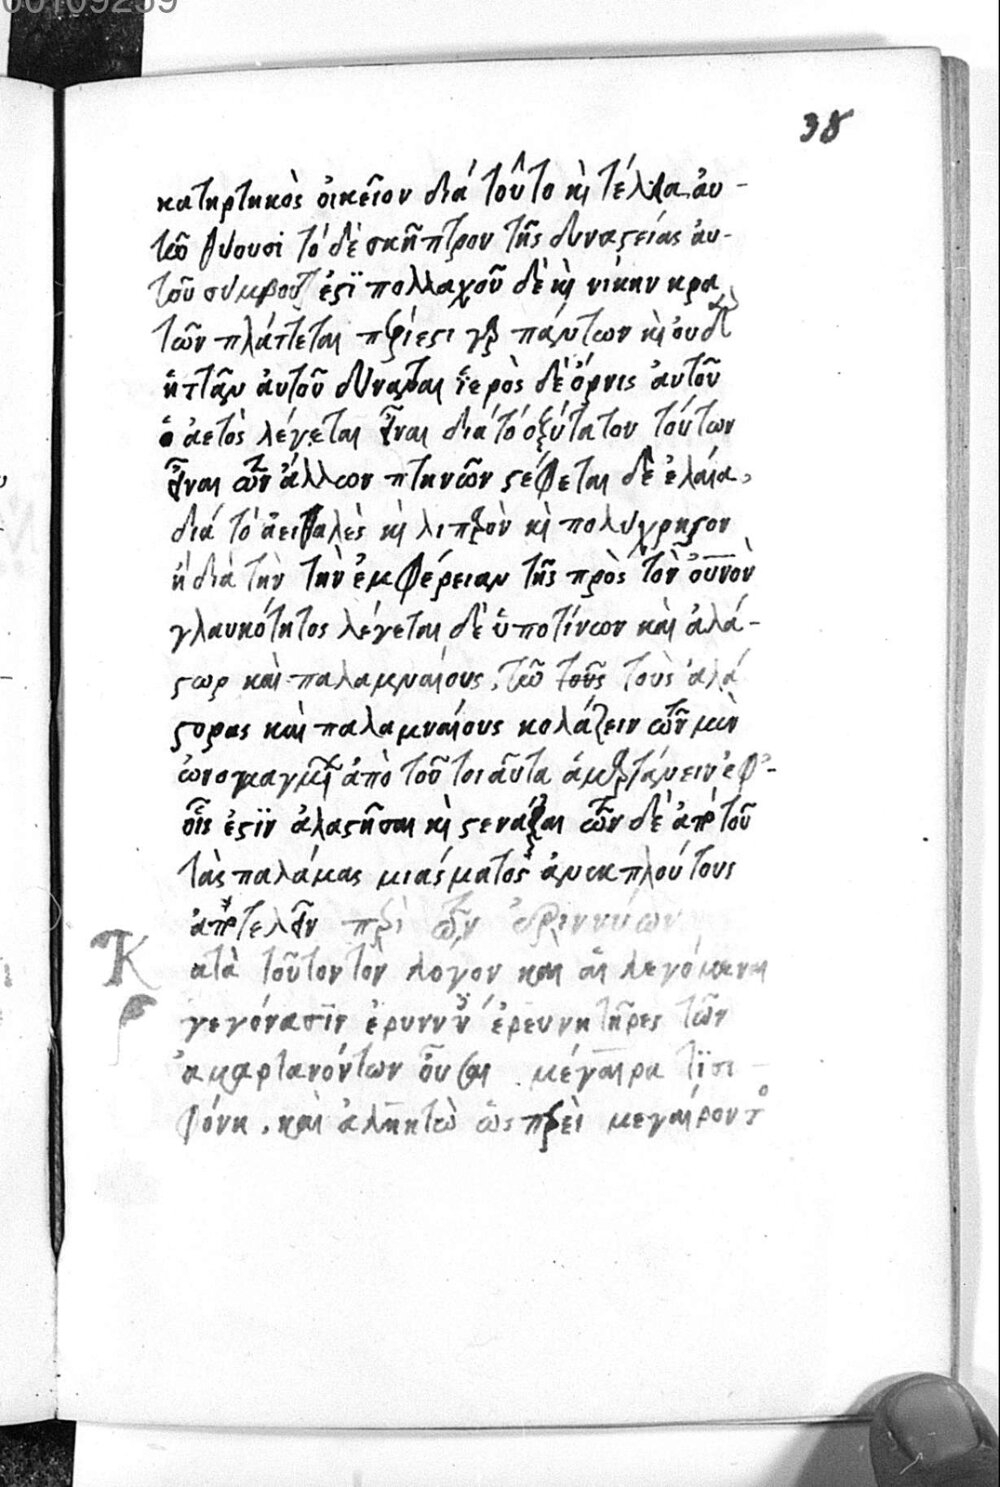 00109259
38
κατηρτηκὸς οἰκεῖον διά τοῦτο κὶ τέλλα. ἀυ-
τῶ θύουσι τὸ δὲ σκῆπτρον τῆς δυναςείας ἀυ-
τοῦ σύμβου ἐςϊ πολλαχοῦ δὲ κὶ νίκην κρα
τῶν πλάττεται περίεςι γὰρ πάντων κὶ ουδ
ἡττᾶν ἀυτοῦ δύναται ἱερὸς δὲ ὄρνις ἀυτοῦ
ὁ ἀετὸς λέγεται εἶναι διὰ τὸ ὀξύτατον τούτων
εἶναι τῶν ἄλλων πτηνῶν ςέφεται δὲ ἐλαία,
διά τὸ ἀειθαλὲς κὶ λιπαρὸν κὶ πολύχρηςον
ἡ διὰ τὴν τὴν ἐμφέρειαν τῆς πρὸς τὸν οὐνὸν
γλαυκότητος λέγεται δὲ ὑπο τίνων καὶ ἀλά-
ςωρ καὶ παλαμναίους. τῶ τοῦς τοὺς ἀλά
ςορας καὶ παλαμναίους κολάζειν τῶν μὲν
ὠνομασμένων ἀπὸ τοῦ τοιαῦτα ἁμαρτάνειν ἐφ'-
οἷς ἐςϊν ἀλαςῆσαι κὶ ςενάξαι τῶν δὲ ἀπὸ τοῦ
τὰς παλάμας μιάσματος ἀνεκπλούτους
ἀποτελεῖν περὶ τῶν ἐριννύων
Κατὰ τοῦτον τὸν λόγον καὶ αἱ λεγόμεναι
γεγόνασϊν ἐρυννῦ ἐρευνητῆρες τῶν
ἁμαρτανόντων οὖσαι . μέγαιρα τϊσι
φόνη . καὶ ἀληκτὼ ὡς περεὶ μεγαίροντο